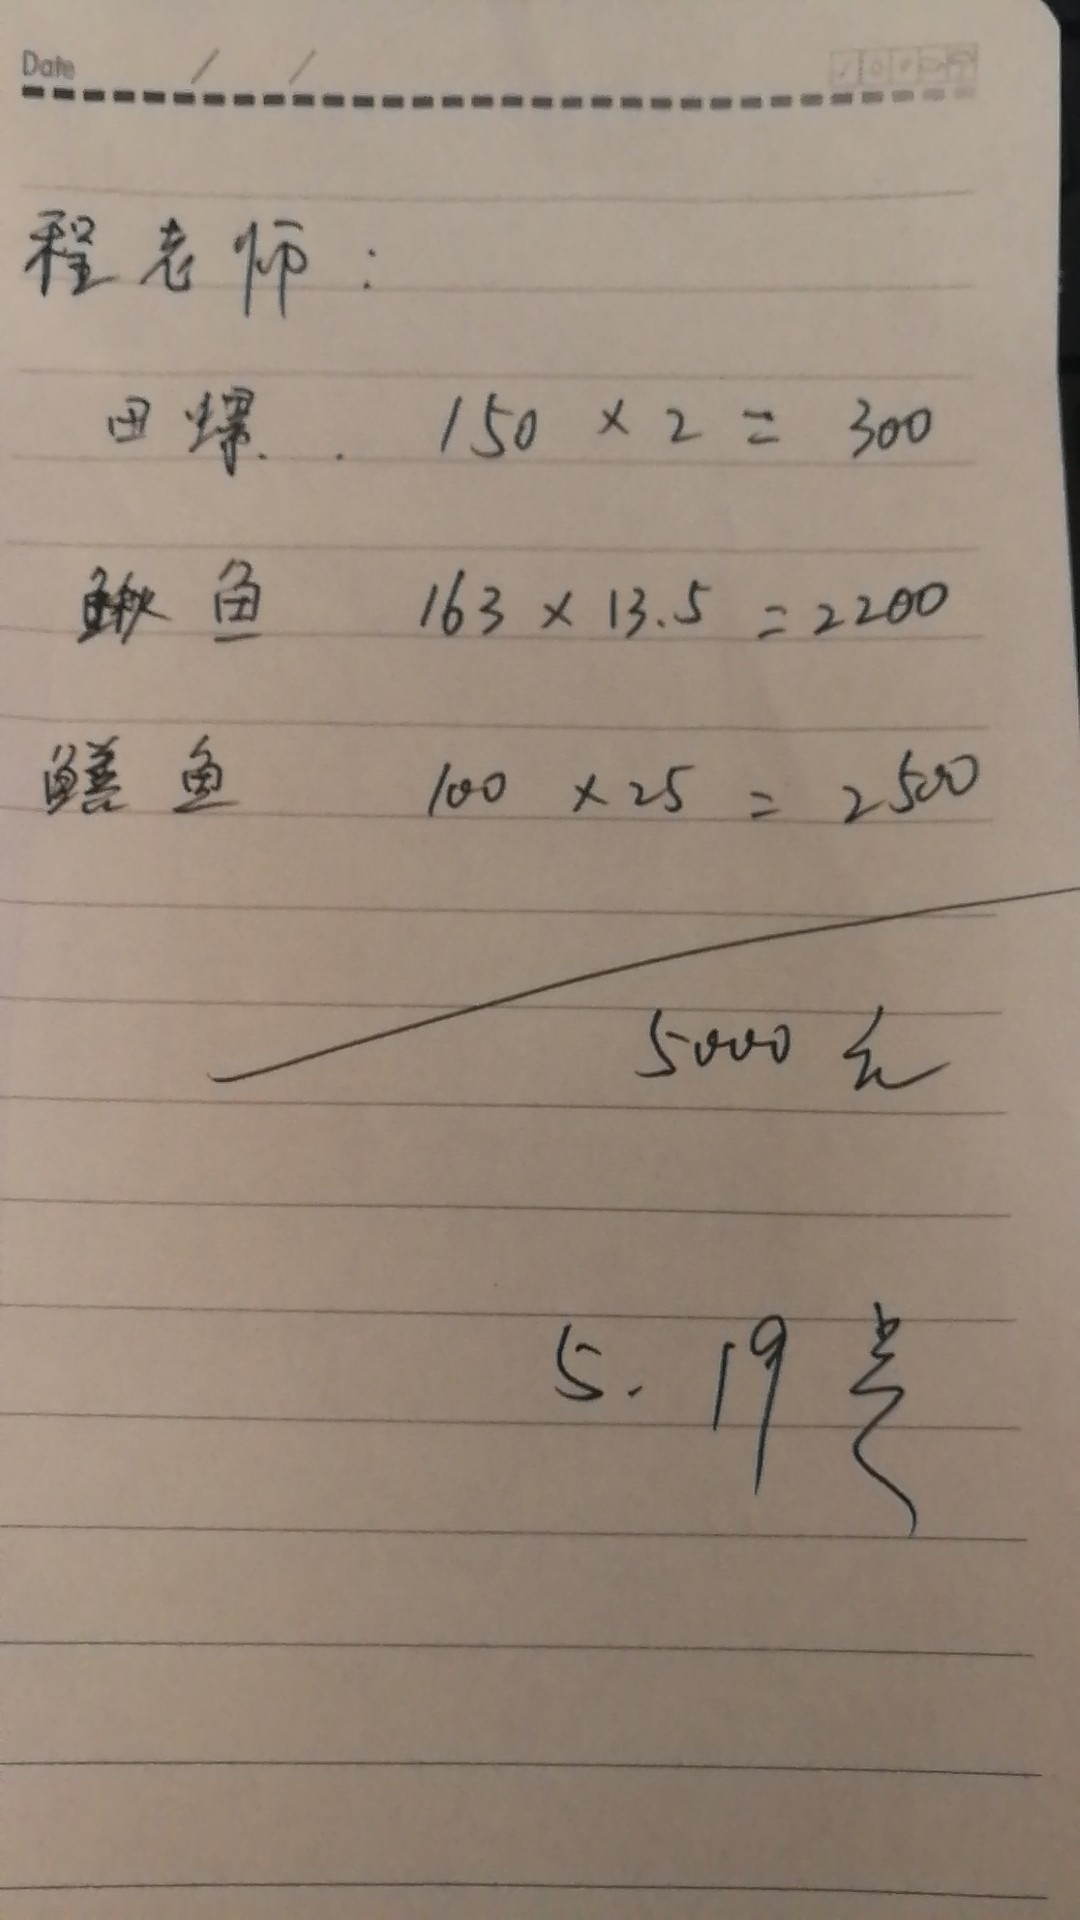 Date / /
程老师:
田螺. 150 × 2 = 300
鳅鱼 163 × 13.5 = 2200
鳝鱼 100 × 25 = 2500
5000元
5.19